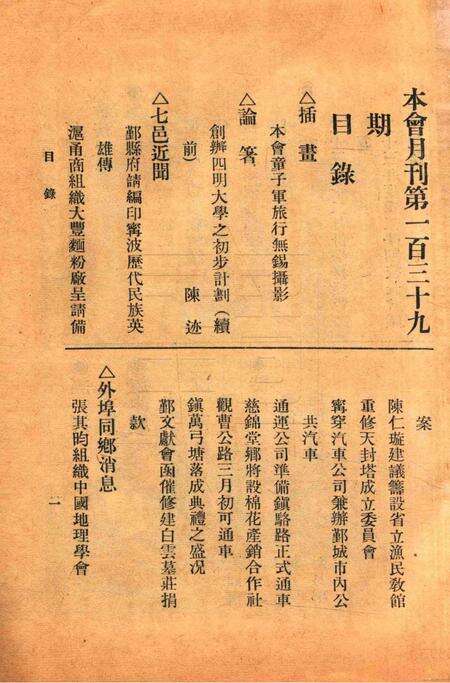 本會月刊第一百三十九
期
目錄
△插畫
本會童子軍旅行無錫攝影
△論箸
創辦四明大學之初步計劃(續
前) 陳迹
△七邑近聞
鄞縣府請編印甯波歷代民族英
雄傳
滬甬商組織大豐麵粉廠呈請備
目錄
案
陳仁璇建議籌設省立漁民教館
重修天封塔成立委員會
甯穿汽車公司兼辦鄞城市內公
共汽車
通運公司準備鎮駱路正式通車
慈錦堂鄉將設棉花產銷合作社
觀曹公路三月初可通車
鎮萬弓塘落成典禮之盛况
鄞文獻會函催修建白雲墓莊捐
款
△外埠同鄉消息
張其昀組織中國地理學會
一